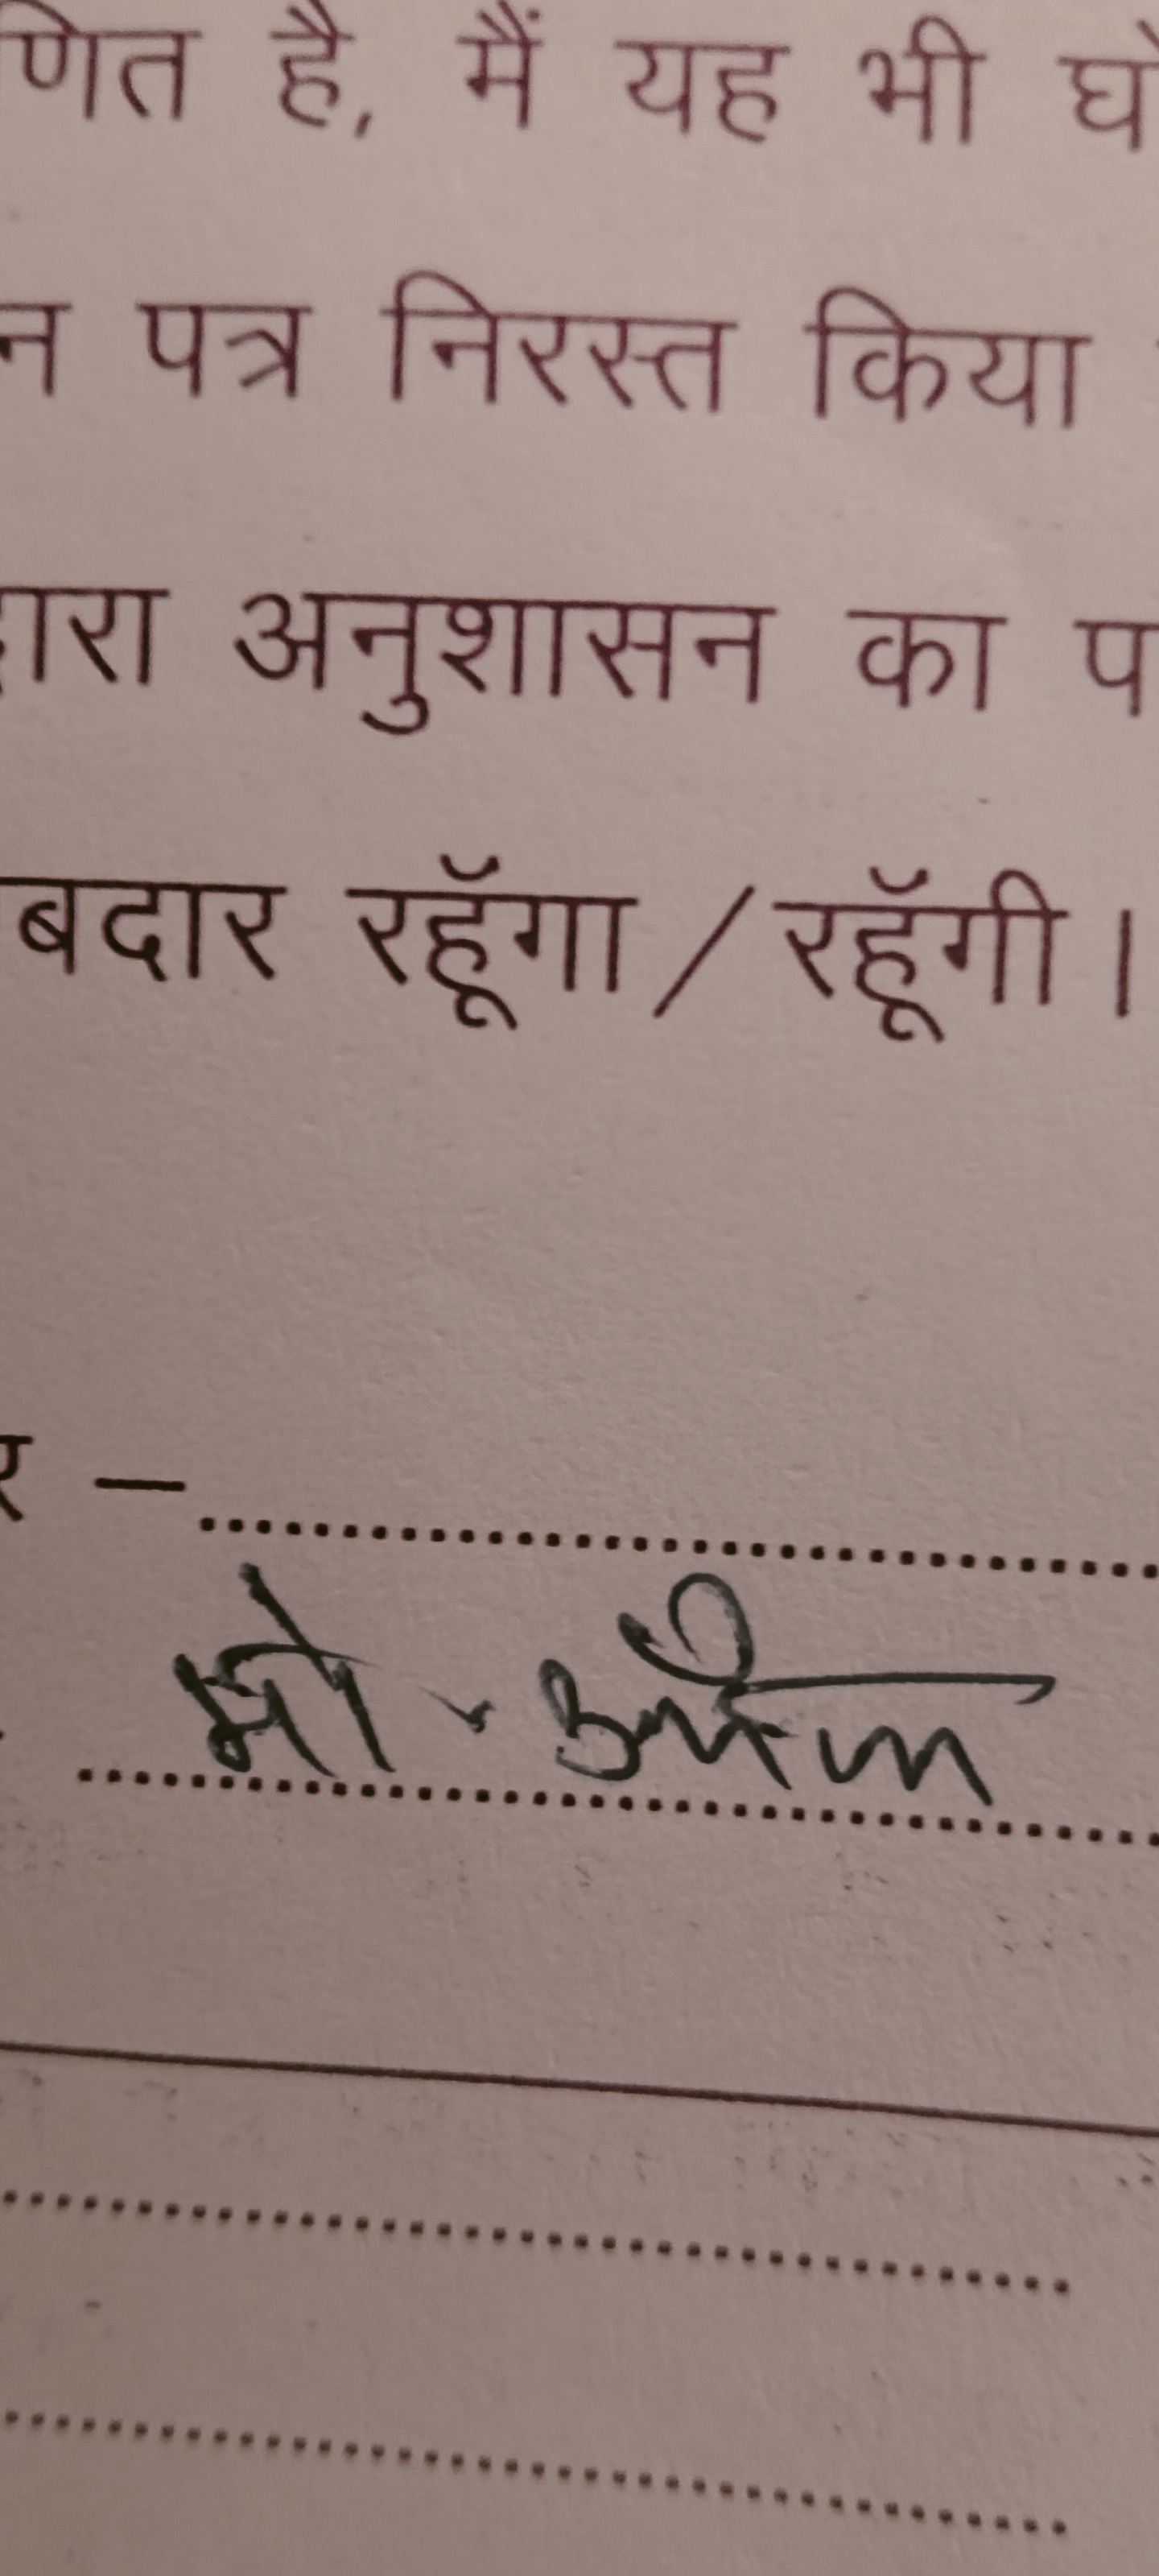 णित है, मैं यह भी घो
न पत्र निरस्त किया
द्वारा अनुशासन का प
बदार रहूँगा / रहूँगी।
र –
मो.